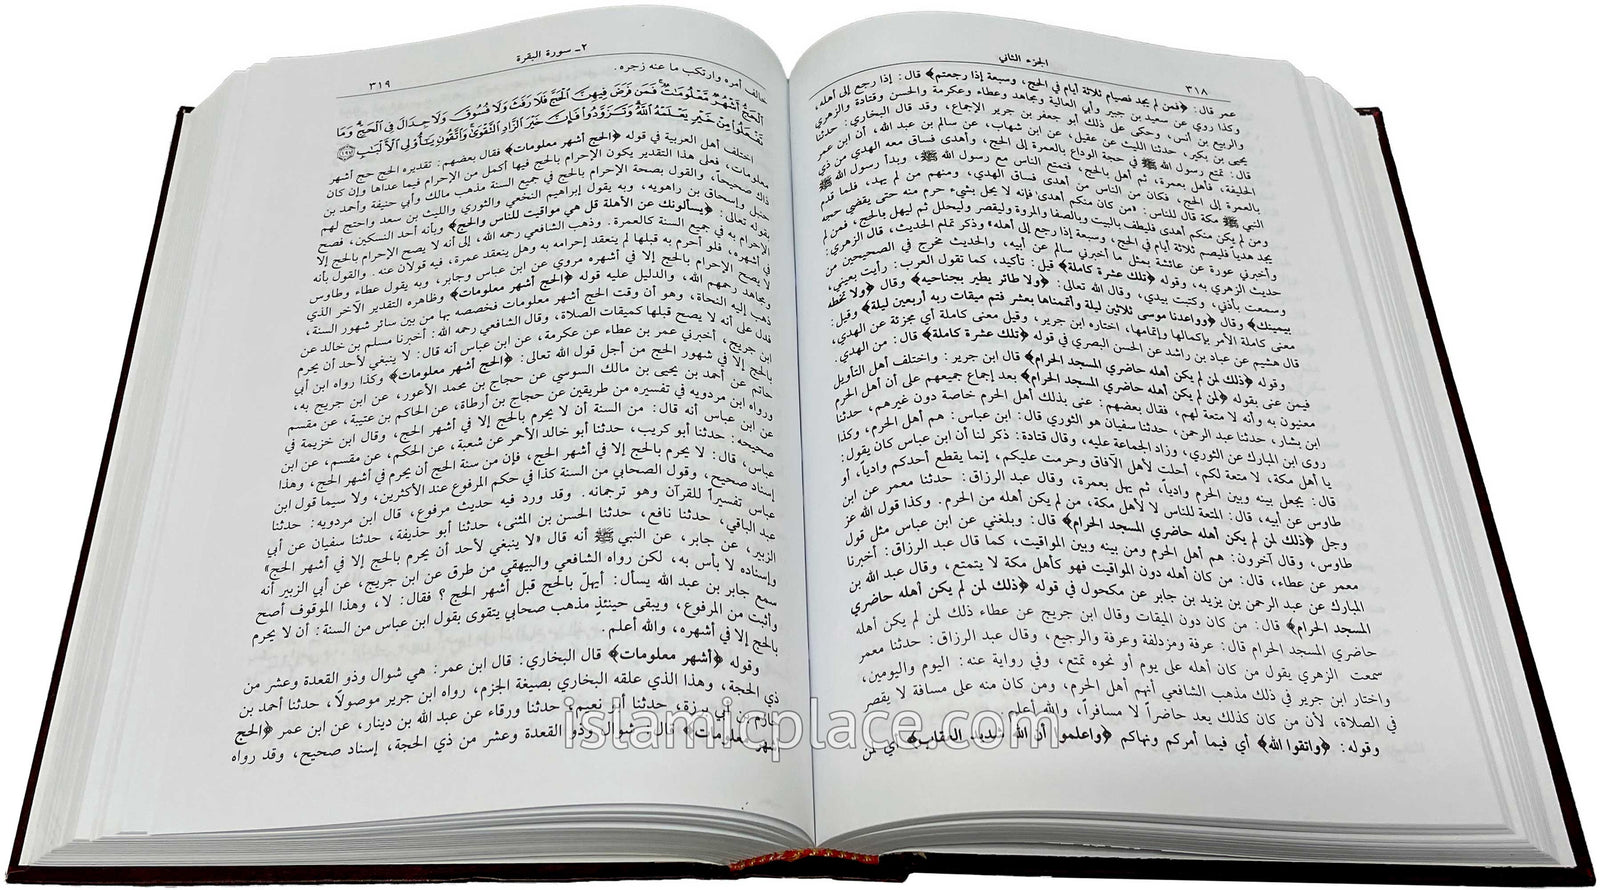 الجزء الثاني
٣١٨
عمر قال: ﴿فمن لم يجد فصيام ثلاثة أيام في الحج، وسبعة إذا رجعتم﴾ قال: إذا رجع إلى أهله،
وكذا روي عن سعيد بن جبير وأبي العالية ومجاهد وعطاء وعكرمة والحسن وقتادة والزهري
والربيع بن أنس، وحكى على ذلك أبو جعفر بن جرير الإجماع، وقد قال البخاري: حدثنا
يحيى بن بكير، حدثنا الليث عن عقيل، عن ابن شهاب، عن سالم بن عبد الله، أن ابن عمر
قال: تمتع رسول الله ﷺ في حجة الوداع بالعمرة إلى الحج، وأهدى فساق معه الهدي من ذي
الحليفة، فأهل بعمرة، ثم أهل بالحج، فتمتع الناس مع رسول الله ﷺ، وبدأ رسول الله ﷺ
بالعمرة إلى الحج، فكان من الناس من أهدى فساق الهدي، ومنهم من لم يهد، فلما قدم
النبي ﷺ مكة قال للناس: «من كان منكم أهدى فإنه لا يحل بشيء حرم منه حتى يقضي حجه
ومن لم يكن منكم أهدى فليطف بالبيت وبالصفا والمروة وليقصر وليحلل ثم ليهل بالحج، فمن لم
يجد هدياً فليصم ثلاثة أيام في الحج، وسبعة إذا رجع إلى أهله» وذكر تمام الحديث، قال الزهري:
وأخبرني عروة عن عائشة بمثل ما أخبرني سالم عن أبيه، والحديث مخرج في الصحيحين من
حديث الزهري به، وقوله ﴿تلك عشرة كاملة﴾ قيل: تأكيد، كما تقول العرب: رأيت بعيني،
وسمعت بأذني، وكتبت بيدي، وقال الله تعالى: ﴿ولا طائر يطير بجناحيه﴾ وقال ﴿ولا تخطه
بيمينك﴾ وقال ﴿وواعدنا موسى ثلاثين ليلة وأتممناها بعشر فتم ميقات ربه أربعين ليلة﴾ وقيل:
معنى كاملة الأمر بإكمالها وإتمامها، اختاره ابن جرير، وقيل معنى كاملة أي مجزئة عن الهدي،
قال هشيم عن عباد بن راشد عن الحسن البصري في قوله ﴿تلك عشرة كاملة﴾ قال: من الهدي.
وقوله ﴿ذلك لمن لم يكن أهله حاضري المسجد الحرام﴾ قال ابن جرير: واختلف أهل التأويل
فيمن عنى بقوله ﴿لمن لم يكن أهله حاضري المسجد الحرام﴾ بعد إجماع جميعهم على أن أهل الحرم
معنيون به وأنه لا متعة لهم، فقال بعضهم: عنى بذلك أهل الحرم خاصة دون غيرهم، حدثنا
ابن بشار، حدثنا عبد الرحمن، حدثنا سفيان هو الثوري قال: ابن عباس: هم أهل الحرم، وكذا
روى ابن المبارك عن الثوري، وزاد الجماعة عليه، وقال قتادة: ذكر لنا أن ابن عباس كان يقول:
يا أهل مكة، لا متعة لكم، أحلت لأهل الآفاق وحرمت عليكم، إنما يقطع أحدكم وادياً، أو
قال: يجعل بينه وبين الحرم وادياً، ثم يهل بعمرة، وقال عبد الرزاق: حدثنا معمر عن ابن
طاوس عن أبيه، قال: المتعة للناس لا لأهل مكة، من لم يكن أهله من الحرم. وكذا قول الله عز
وجل ﴿ذلك لمن لم يكن أهله حاضري المسجد الحرام﴾ قال: وبلغني عن ابن عباس مثل قول
طاوس، وقال آخرون: هم أهل الحرم ومن بينه وبين المواقيت، كما قال عبد الرزاق: أخبرنا
معمر عن عطاء، قال: من كان أهله دون المواقيت فهو كأهل مكة لا يتمتع، وقال عبد الله بن
المبارك عن عبد الرحمن بن يزيد بن جابر عن مكحول في قوله ﴿ذلك لمن لم يكن أهله حاضري
المسجد الحرام﴾ قال: من كان دون الميقات وقال ابن جريج عن عطاء ذلك لمن لم يكن أهله
حاضري المسجد الحرام قال: عرفة ومزدلفة وعرفة والرجيع، وقال عبد الرزاق: حدثنا معمر
سمعت الزهري يقول من كان أهله على يوم أو نحوه تمتع، وفي رواية عنه: اليوم واليومين،
واختار ابن جرير في ذلك مذهب الشافعي أنهم أهل الحرم، ومن كان منه على مسافة لا يقصر
في الصلاة، لأن من كان كذلك يعد حاضراً لا مسافراً، والله أعلم
وقوله: ﴿واتقوا الله﴾ أي فيما أمركم ونهاكم ﴿واعلموا أن الله شديد العقاب﴾ أي لمن
٢ـ سورة البقرة
٣١٩
خالف أمره وارتكب ما عنه زجره.
ٱلْحَجُّ أَشْهُرٌ مَّعْلُومَٰتٌ فَمَن فَرَضَ فِيهِنَّ ٱلْحَجَّ فَلَا رَفَثَ وَلَا فُسُوقَ وَلَا جِدَالَ فِي ٱلْحَجِّ وَمَا
تَفْعَلُوا۟ مِنْ خَيْرٍ يَعْلَمْهُ ٱللَّهُ وَتَزَوَّدُوا۟ فَإِنَّ خَيْرَ ٱلزَّادِ ٱلتَّقْوَىٰ وَٱتَّقُونِ يَٰٓأُو۟لِي ٱلْأَلْبَٰبِ ١٩٧
اختلف أهل العربية في قوله ﴿الحج أشهر معلومات﴾ فقال بعضهم: تقديره الحج حج أشهر
معلومات، فعلى هذا التقدير يكون الإحرام بالحج فيها أكمل من الإحرام فيما عداها وإن كان
ذاك صحيحاً، والقول بصحة الإحرام بالحج في جميع السنة مذهب مالك وأبي حنيفة وأحمد بن
حنبل وإسحاق بن راهويه، وبه يقول إبراهيم النخعي والثوري والليث بن سعد واحتج لهم
بقوله تعالى: ﴿يسألونك عن الأهلة قل هي مواقيت للناس والحج﴾ وبأنه أحد النسكين، فصح
الإحرام به في جميع السنة كالعمرة. وذهب الشافعي رحمه الله، إلى أنه لا يصح الإحرام بالحج إلا
في أشهره، فلو أحرم به قبلها لم ينعقد إحرامه به وهل ينعقد عمرة، فيه قولان عنه. والقول بأنه
لا يصح الإحرام بالحج إلا في أشهره مروي عن ابن عباس وجابر، وبه يقول عطاء وطاوس
ومجاهد رحمهم الله، والدليل عليه قوله ﴿الحج أشهر معلومات﴾ وظاهره التقدير الآخر الذي
ذهب إليه النحاة، وهو أن وقت الحج أشهر معلومات فخصصه بها من بين سائر شهور السنة،
فدل على أنه لا يصح قبلها كميقات الصلاة، وقال الشافعي رحمه الله: أخبرنا مسلم بن خالد عن
ابن جريج، أخبرني عمر بن عطاء عن عكرمة، عن ابن عباس أنه قال: لا ينبغي لأحد أن يحرم
بالحج إلا في شهور الحج من أجل قول الله تعالى: ﴿الحج أشهر معلومات﴾ وكذا رواه ابن أبي
حاتم عن أحمد بن يحيى بن مالك السوسي عن حجاج بن محمد الأعور، عن ابن جريج به،
ورواه ابن مردويه في تفسيره من طريقين عن حجاج بن أرطاة، عن الحاكم بن عتيبة، عن مقسم
عن ابن عباس أنه قال: من السنة أن لا يحرم بالحج إلا في أشهر الحج، وقال ابن خزيمة في
صحيحه: حدثنا أبو كريب، حدثنا أبو خالد الأحمر عن شعبة، عن الحكم، عن مقسم، عن ابن
عباس، قال: لا يحرم بالحج إلا في أشهر الحج، فإن من سنة الحج أن يحرم في أشهر الحج، وهذا
إسناد صحيح، وقول الصحابي من السنة كذا في حكم المرفوع عند الأكثرين، ولا سيما قول ابن
عباس تفسيراً للقرآن وهو ترجمانه. وقد ورد فيه حديث مرفوع، قال ابن مردويه: حدثنا
عبد الباقي، حدثنا نافع، حدثنا الحسن بن المثنى، حدثنا أبو حذيفة، حدثنا سفيان عن أبي
الزبير، عن جابر، عن النبي ﷺ أنه قال «لا ينبغي لأحد أن يحرم بالحج إلا في أشهر الحج»
وإسناده لا بأس به، لكن رواه الشافعي والبيهقي من طرق عن ابن جريج، عن أبي الزبير أنه
سمع جابر بن عبد الله يسأل: أيهلّ بالحج قبل أشهر الحج؟ فقال: لا، وهذا الموقوف أصح
وأثبت من المرفوع، ويبقى حينئذٍ مذهب صحابي يتقوى بقول ابن عباس من السنة: أن لا يحرم
بالحج إلا في أشهره، والله أعلم.
وقوله ﴿أشهر معلومات﴾ قال البخاري: قال ابن عمر: هي شوال وذو القعدة وعشر من
ذي الحجة، وهذا الذي علقه البخاري بصيغة الجزم، رواه ابن جرير موصولاً، حدثنا أحمد بن
حازم بن أبي برزة، حدثنا أبو نعيم، حدثنا ورقاء عن عبد الله بن دينار، عن ابن عمر ﴿الحج
أشهر معلومات﴾ قال: شوال وذو القعدة وعشر من ذي الحجة، إسناد صحيح، وقد رواه
islamicplace.com